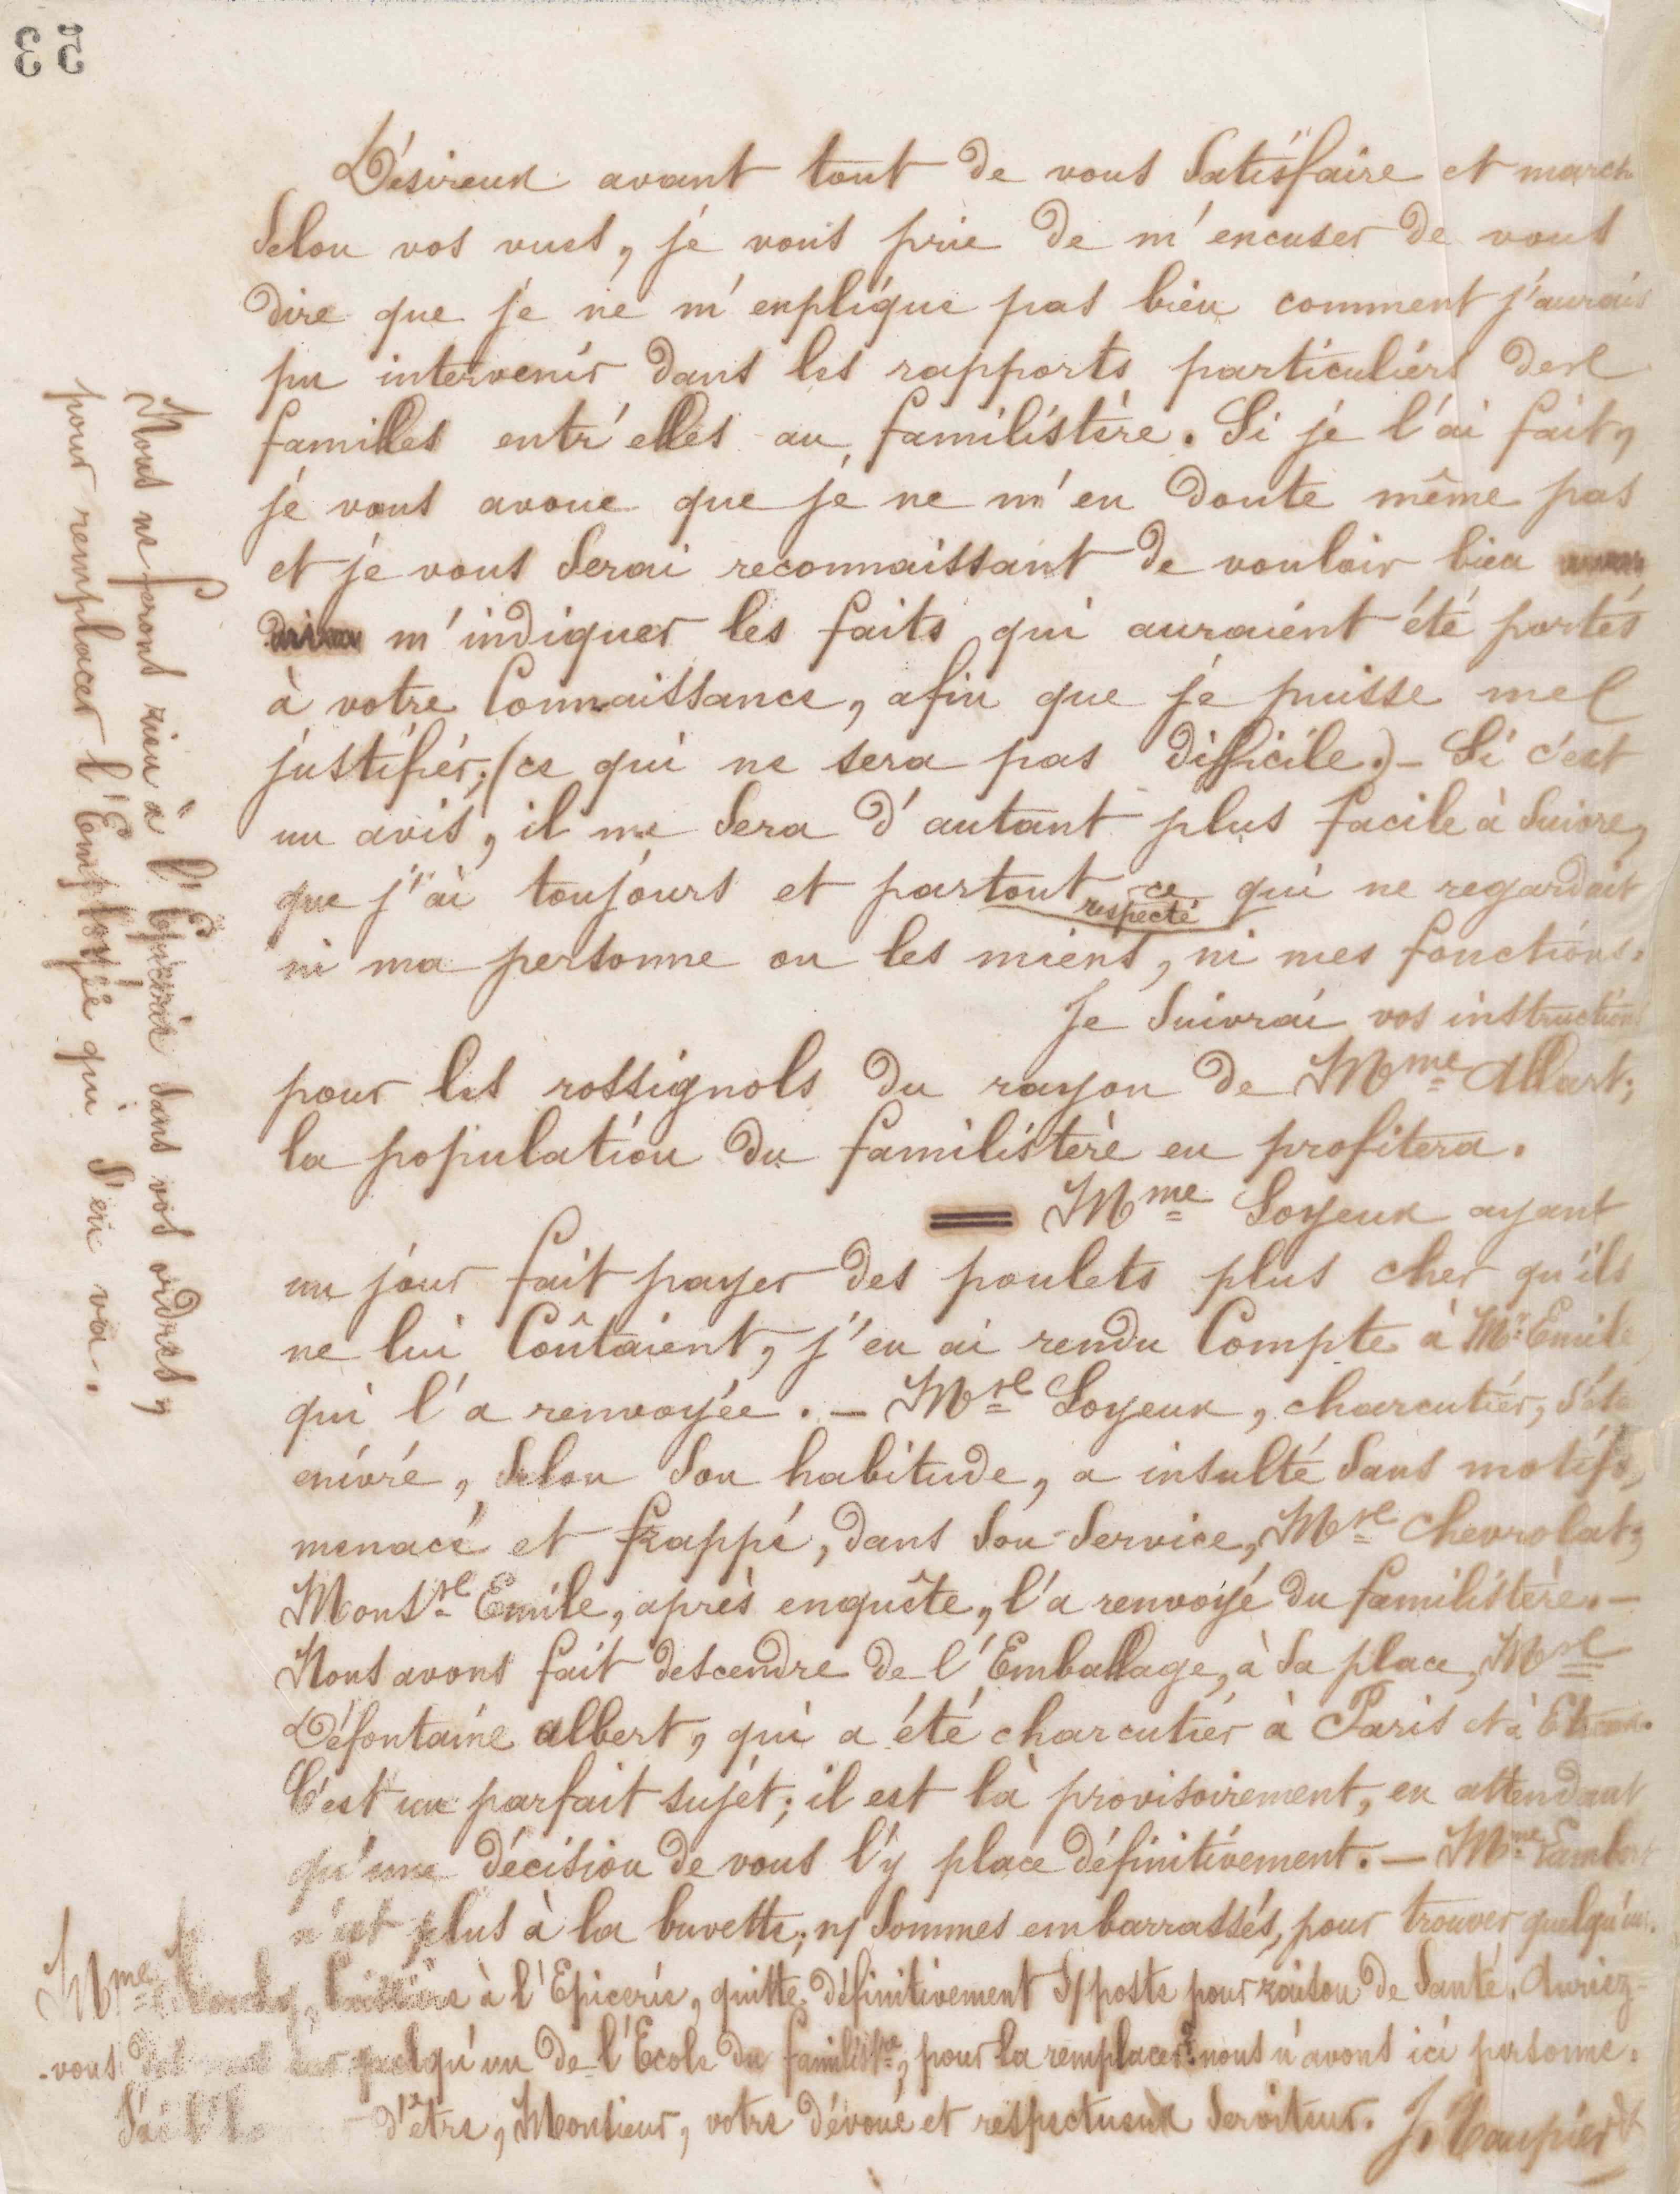 53
Désireux avant tout de vous satisfaire et march
selon vos vues, je vous prie de m'excuser de vous
dire que je ne m'explique pas bien comment j'aurais
pu intervenir dans les rapports particuliers des
familles entr'elles au familistère. Si je l'ai fait,
je vous avoue que je ne m'en doute même pas
et je vous serai reconnaissant de vouloir bien
m'indiquer les faits qui auraient été portés
à votre Connaissance, afin que je puisse me
justifier; (ce qui ne sera pas difficile.) - Si c'est
un avis, il me sera d'autant plus facile à suivre,
que j'ai toujours et partout respecté ce qui ne regardait
ni ma personne ou les miens, ni mes fonctions.
Je suivrai vos instructions
pour les rossignols du rayon de Mme Allart;
la population du familistère en profitera.
Mme Loyeux ayant
un jour fait payer des poulets plus cher qu'ils
ne lui Coûtaient, j'en ai rendu Compte à Mr Emile
qui l'a renvoyée. - Mr Loyeux, charcutier, s'éta
enivré, selon son habitude, a insulté sans motifs,
menacé et frappé, dans son service, Mr Chevrolat,
Monsr Emile, après enquête, l'a renvoyé du familistère. -
Nous avons fait descendre de l'Emballage, à sa place, Mr
Défontaine albert, qui a été charcutier à Paris et à
C'est un parfait sujet; il est là provisoirement, en attendant
qu'une décision de vous l'y place définitivement. - Mme Lambert
n'est plus à la buvette; n/ sommes embarrassés, pour trouver quelqu'un.
Mme à l'Epicerie, quitte définitivement s/ poste pour raison de santé. Auriez-
-vous quelqu'un de l'Ecole du familistre, pour la remplacer? nous n'avons ici personne.
d'être, Monsieur, votre dévoué et respectueux serviteur.
Nous ne ferons rien à l'Epicerie sans vos ordres,
pour remplacer l'Employé qui s'en va.